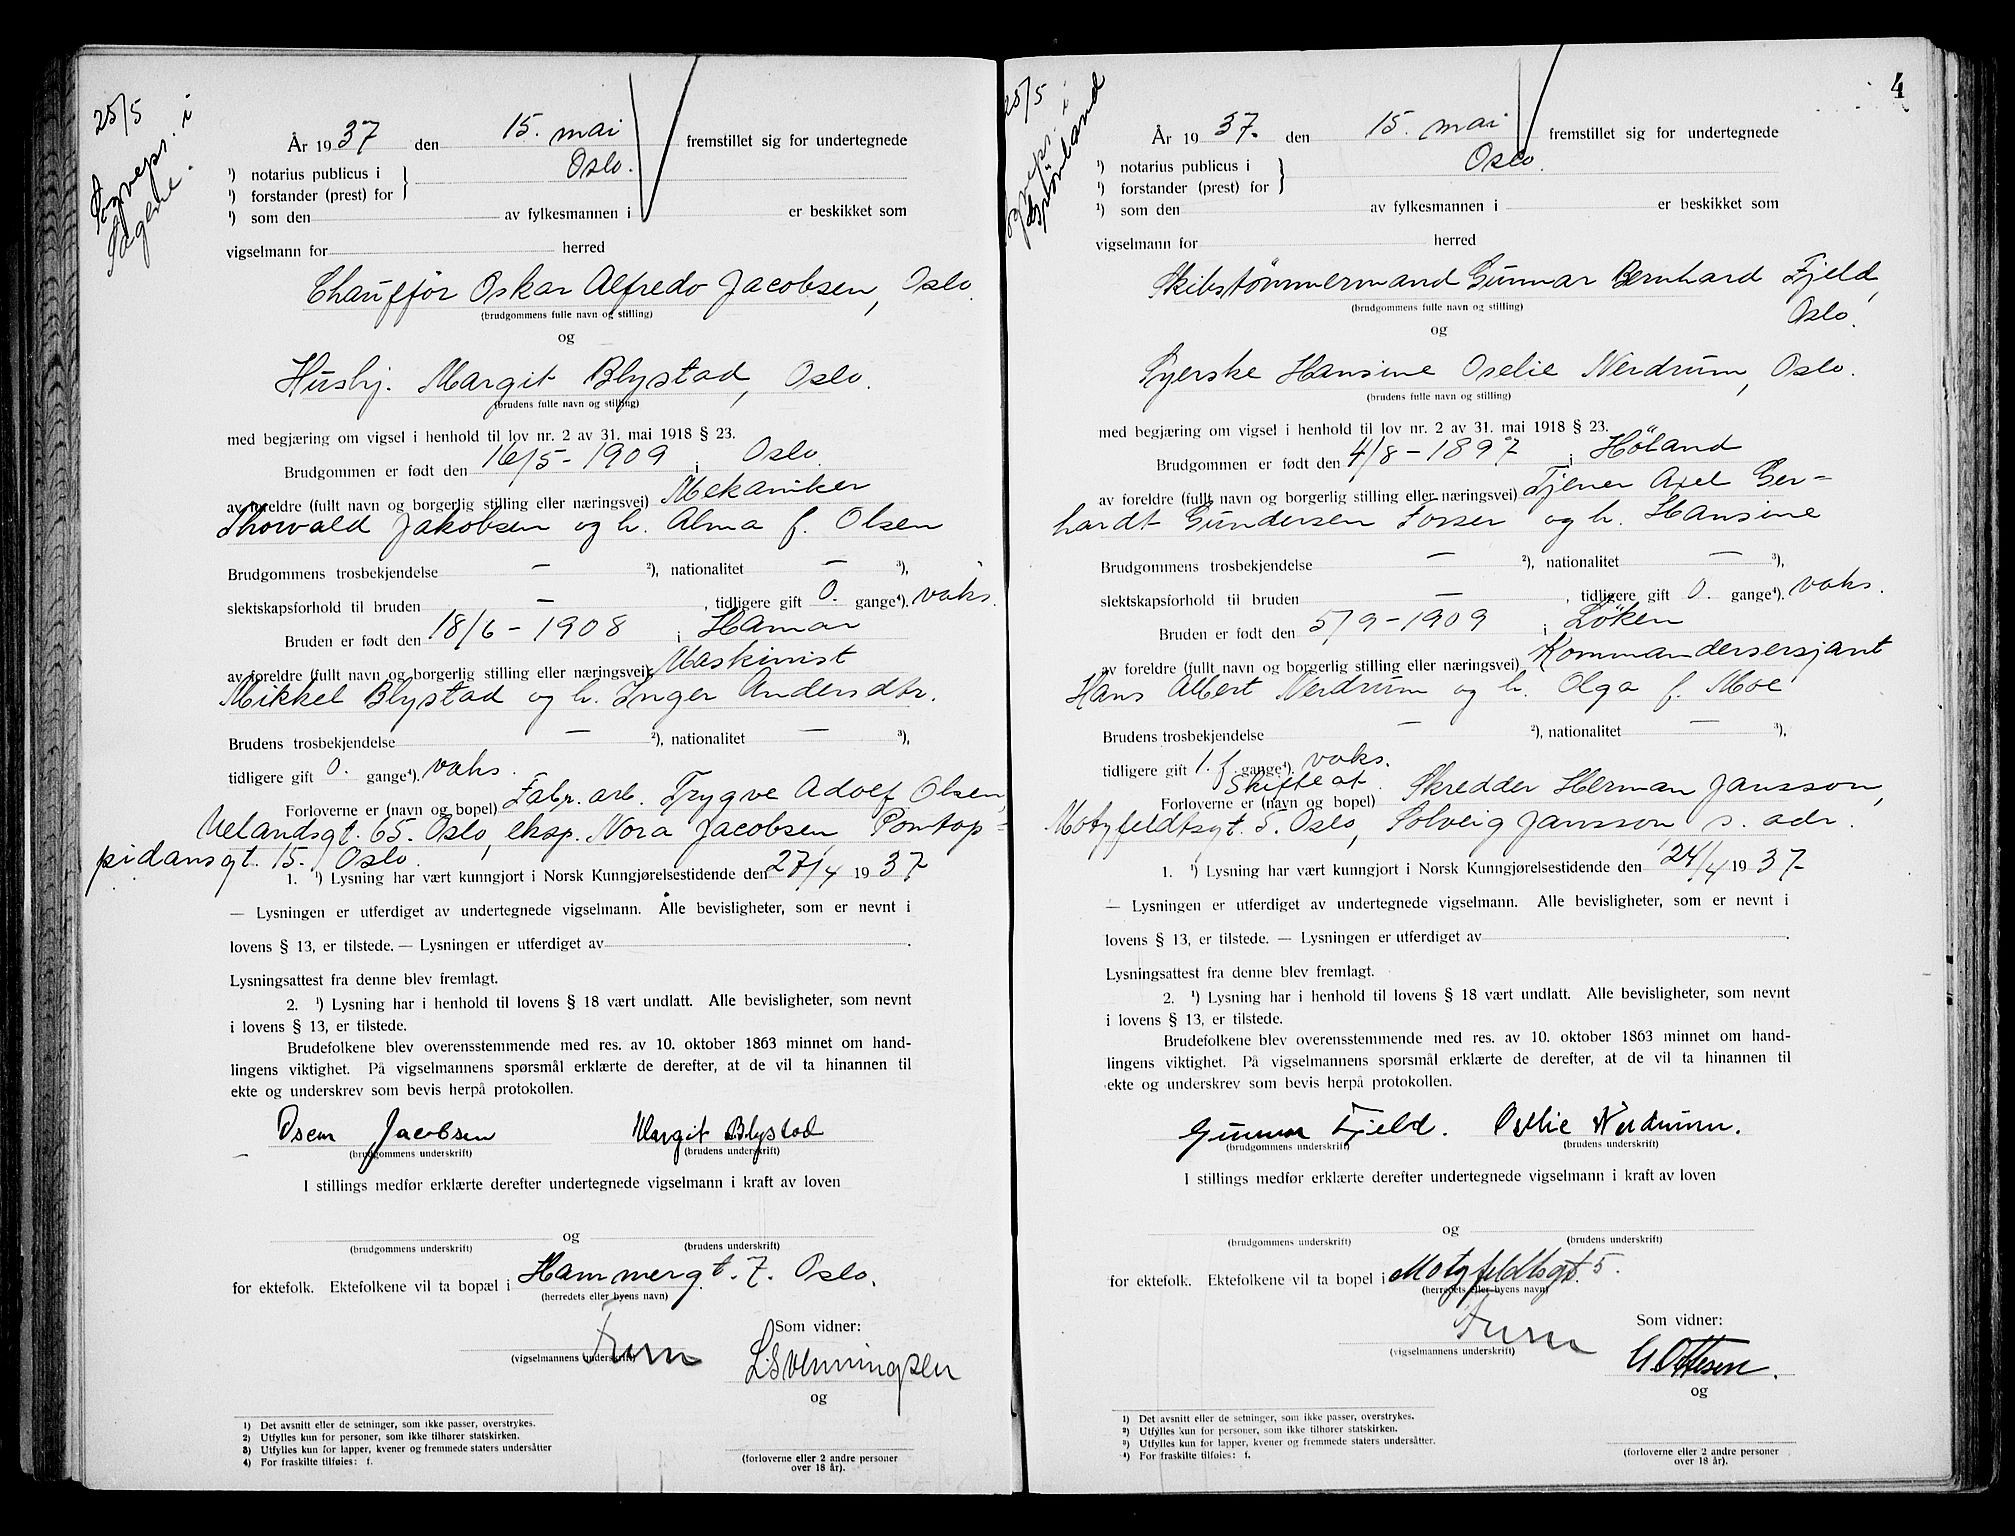 25/5
i
År 1937 den 15. mai fremstillet sig for undertegnede
¹) notarius publicus i
Oslo.
¹) forstander (prest) for }
¹) som den av fylkesmannen i er beskikket som
vigselmann for herred
Chauffør Oskar Alfredo Jacobsen, Oslo.
(brudgommens fulle navn og stilling)
og
Hushj. Margit Blystad, Oslo.
(brudens fulle navn og stilling)
med begjæring om vigsel i henhold til lov nr. 2 av 31. mai 1918 § 23.
Brudgommen er født den 16/5 - 1909 i Oslo.
av foreldre (fullt navn og borgerlig stilling eller næringsvei) Mekaniker
Thorvald Jakobsen og h. Alma f. Olsen
Brudgommens trosbekjendelse — ²), nationalitet — ³),
slektskapsforhold til bruden — , tidligere gift 0. gange⁴). vaks.
Bruden er født den 18/6 - 1908 i Hamar
av foreldre (fullt navn og borgerlig stilling eller næringsvei) Maskinist
Mikkel Blystad og h. Inger Andersdtr.
Brudens trosbekjendelse — ²), nationalitet — ³),
tidligere gift 0. gange⁴). vaks.
Forloverne er (navn og bopel) Fabr. arb. Trygve Adolf Olsen,
Uelandsgt. 65. Oslo, eksp. Nora Jacobsen, Pontop-
pidansgt. 15. Oslo.
1. ¹) Lysning har vært kunngjort i Norsk Kunngjørelsestidende den 27/4 1937
— Lysningen er utferdiget av undertegnede vigselmann. Alle bevisligheter, som er nevnt i
lovens § 13, er tilstede. — Lysningen er utferdiget av .
Lysningsattest fra denne blev fremlagt.
2. ¹) Lysning har i henhold til lovens § 18 vært undlatt. Alle bevisligheter, som nevnt
i lovens § 13, er tilstede.
Brudefolkene blev overensstemmende med res. av 10. oktober 1863 minnet om hand-
lingens viktighet. På vigselmannens spørsmål erklærte de derefter, at de vil ta hinannen til
ekte og underskrev som bevis herpå protokollen.
Oscar Jacobsen Margit Blystad
(brudgommens underskrift) (brudens underskrift)
I stillings medfør erklærte derefter undertegnede vigselmann i kraft av loven
og
(brudgommens underskrift) (brudens underskrift)
for ektefolk. Ektefolkene vil ta bopæl i Hammergt. 7. Oslo.
(herredets eller byens navn)
Som vidner:
(vigselmannens underskrift) L. Svenningsen
og
1) Det avsnitt eller de setninger, som ikke passer, overstrykes.
2) Utfylles kun for personer, som ikke tilhører statskirken.
3) Utfylles kun for lapper, kvener og fremmede staters undersåtter
4) For fraskilte tilføies: f.
(forloverne eller 2 andre personer
over 18 år).
4
25/5
i
År 1937. den 15. mai fremstillet sig for undertegnede
¹) notarius publicus i
Oslo.
¹) forstander (prest) for }
¹) som den av fylkesmannen i er beskikket som
vigselmann for herred
Skibstømmermand Gunnar Bernhard Fjeld,
(brudgommens fulle navn og stilling)
Oslo.
og
Syerske Hansine Oselie Nerdrum, Oslo.
(brudens fulle navn og stilling)
med begjæring om vigsel i henhold til lov nr. 2 av 31. mai 1918 § 23.
Brudgommen er født den 4/8 - 1897 i Høland
av foreldre (fullt navn og borgerlig stilling eller næringsvei) Tjener Axel Ger-
hardt Gundersen Fosser og h. Hansine
Brudgommens trosbekjendelse — ²), nationalitet — ³),
slektskapsforhold til bruden — , tidligere gift 0. gange⁴). vaks.
Bruden er født den 5/9 - 1909 i Løken
av foreldre (fullt navn og borgerlig stilling eller næringsvei) Kommandersersjant
Hans Albert Nerdrum og h. Olga f. Moe
Brudens trosbekjendelse — ²), nationalitet — ³),
tidligere gift 1. f. gange⁴). vaks.
Skifteat.
Forloverne er (navn og bopel) Skredder Herman Jansson,
Motzfeldtsgt. 5. Oslo, Solveig Jansson s. adr.
1. ¹) Lysning har vært kunngjort i Norsk Kunngjørelsestidende den 24/4 1937-
— Lysningen er utferdiget av undertegnede vigselmann. Alle bevisligheter, som er nevnt i
lovens § 13, er tilstede. — Lysningen er utferdiget av .
Lysningsattest fra denne blev fremlagt.
2. ¹) Lysning har i henhold til lovens § 18 vært undlatt. Alle bevisligheter, som nevnt
i lovens § 13, er tilstede.
Brudefolkene blev overensstemmende med res. av 10. oktober 1863 minnet om hand-
lingens viktighet. På vigselmannens spørsmål erklærte de derefter, at de vil ta hinannen til
ekte og underskrev som bevis herpå protokollen.
Gunnar Fjeld. Oselie Nerdrum.
(brudgommens underskrift) (brudens underskrift)
I stillings medfør erklærte derefter undertegnede vigselmann i kraft av loven
og
(brudgommens underskrift) (brudens underskrift)
for ektefolk. Ektefolkene vil ta bopel i Motzfeldtsgt. 5.
(herredets eller byens navn)
Som vidner:
(vigselmannens underskrift) Ottesen.
og
¹) Det avsnitt eller de setninger, som ikke passer, overstrykes.
²) Utfylles kun for personer, som ikke tilhører statskirken.
³) Utfylles kun for lapper, kvener og fremmede staters undersåtter.
⁴) For fraskilte tilføies: f.
(forloverne eller 2 andre personer
over 18 år).